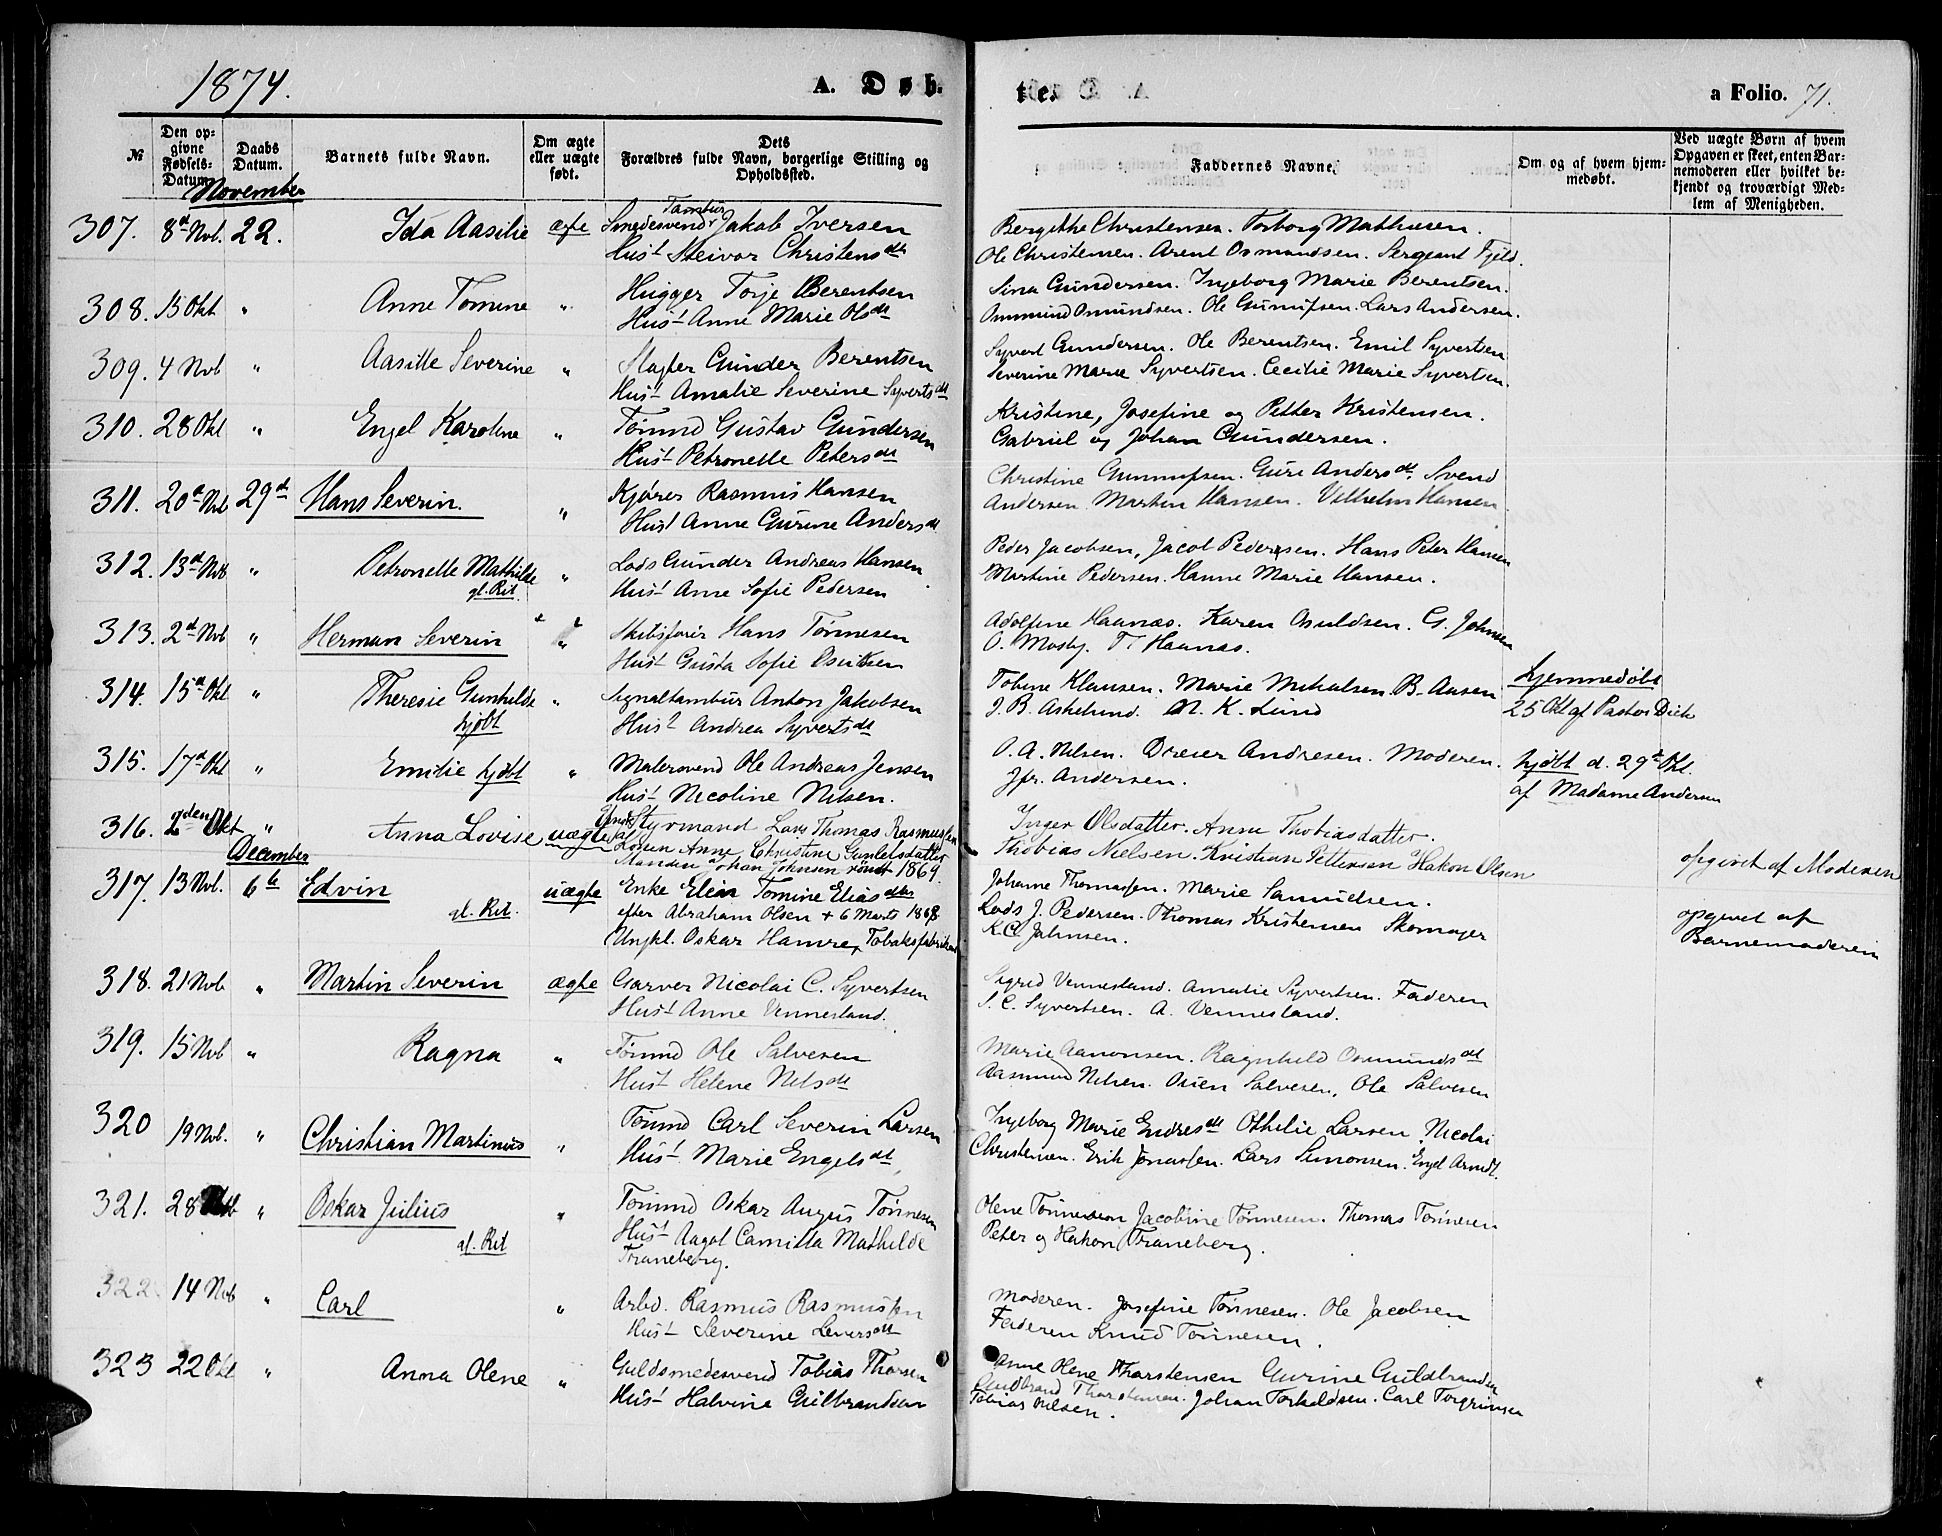 1874.
A. Døb
te.
a Folio. 71.
№
Den opgivne Fødsels-Datum.
Daabs Datum.
Barnets fulde Navn.
Om ægte eller uægte født.
Dets Forældres fulde Navn, borgerlige Stilling og Opholdssted.
Faddernes Navne.
Om og af hvem hjemmedøbt.
Ved uægte Børn af hvem Opgaven er skeet, enten Barnemoderen eller hvilket bekjendt og troværdigt Medlem af Menigheden.
November
307. 8d Nvb. 22. Ida Aasilie ægte Smedesvend Tambur Jakob Iversen
Hust Steivor Christensdt
Bergithe Christensen. Torborg Mathisen.
Ole Christensen. Arent Osmundsen. Sergeant Fjeld.
308. 15 Okt " Anne Tomine " Hugger Torje Berentsen
Hust Anne Marie Olsdt
Sina Gundersen. Ingeborg Marie Berentsen.
Ommund Omundsen. Ole Gunufsen. Lars Andersen.
309. 4 Nvb " Aasille Severine " Slagter Gunder Berentsen
Hust Amalie Severine Syvertsdt
Syvert Gundersen. Ole Berentsen. Emil Syvertsen
Severine Marie Syvertsen. Cecilie Marie Syvertsen.
310. 28 Okt " Engel Karoline " Tømmd Gustav Gundersen
Hust Petronelle Petersdt
Kristine, Josefine og Petter Kristensen.
Gabriel og Johan Gundersen.
311. 20d Nvb 29d Hans Severin. " Kjører Rasmus Hansen
Hust Anne Gurine Andersdt
Christine Gunnufsen. Guri Andersdt. Svend
Andersen. Martin Hansen. Vilhelm Hansen
312. 13d Nvb " Petronelle Mathilde gl. Rit. " Lods Gunder Andreas Hansen
Hust Anne Sofie Pedersen
Peder Jacobsen, Jacob Pedersen. Hans Peter Hansen
Martine Pedersen. Hanne Marie Hansen.
313. 2d Nvb " Herman Severin " Skibsfører Hans Tønnesen
Hust Gusta Sofie
Adolfine Haanæs. Karen Osuldsen. G. Johnsen
O. Mosby. T. Haanæs.
314. 15d Okt " Theresie Gunhilde hjdbt " Signaltambur Anton Jakobsen
Hust Andrea Syvertsdt
Tobine Klausen. Marie Mikalsen. B. Aasen
J. B. Askelund. N. K. Lund
hjemmedøbt
25 Okt af Pastor Dick
315. 17d Okt " Emilie hjdbt " Malersvend Ole Andreas Jensen
Hust Nicoline Nilsen.
O. A. Nilsen. Dreier Andresen. Moderen.
Jfr. Andersen.
hjdbt d. 29d Okt.
af Madame Andersen
316. 2den Okt " Anna Lovise uægte Styrmand Lars Thomas Rasmussen
Anne Christine Gunlelsdatter
Manden Johan Johnsen rømt 1869.
Inger Olsdatter. Anne Thobiasdatter.
Thobias Nielsen. Kristian Pettersen Hakon Olsen
opgivet af Moderen
December
317. 13 Nvb. 6te Edvin gl. Rit. uægte Enke Elen Tomine Eliasdtr
efter Abraham Olsen + 6 Marts 1868
Ungkl. Oskar Hamre, Tobaksfabrikant
Johanne Thomassen. Marie Samuelsen.
Lods J. Pedersen. Thomas Kristensen Skomager
K. C. Jahnsen.
opgivet af
Barnemoderen
318. 21 Nvb " Martin Severin ægte Garver Nicolai C. Syvertsen
Hust Anne Vennesland.
Sigrid Vennesland. Amalie Syvertsen. Faderen
S. C. Syvertsen. A. Vennesland.
319. 15 Nvb " Ragna " Tømmd Ole Salvesen
Hust Helene Nilsdt
Marie Aanonsen. Ragnhild Osmundsdt
Aasmund Nilsen. Osien Salvesen, Ole Salvesen
320 19 Nvb. " Christian Martinus " Tømmd Carl Severin Larsen
Hust Marie Engelsdt
Ingeborg Marie Endresdt Othelie Larsen. Nicolai
Christensen. Erik Jonassen. Lars Simonsen. Engel Arndt.
321. 28 " Oskar Julius gl. Rit " Tømmd Oskar Augus Tønnesen
Hust Aagot Camilla Mathilde
Traneberg.
Olene Tønnesen Jacobine Tønnesen. Thomas Tønnesen
Peter og Hakon Traneberg.
322 14 Nvb " Carl " Arbd. Rasmus Rasmussen
Hust Severine Seversdt
Moderen. Josefine Tønnesen. Ole Jacobsen
Faderen Knud Tønnesen.
323 22 Okt " Anna Olene " Guldsmedesvend Tobias Thorsen
Hust Halvine Gulbrandsen
Anne Olene Tharstensen Gurine Guldbrandsen
Gudbrand Thorstensen. Johan Torkeldsen. Carl Torgrimsen
Tobias Nilsen.